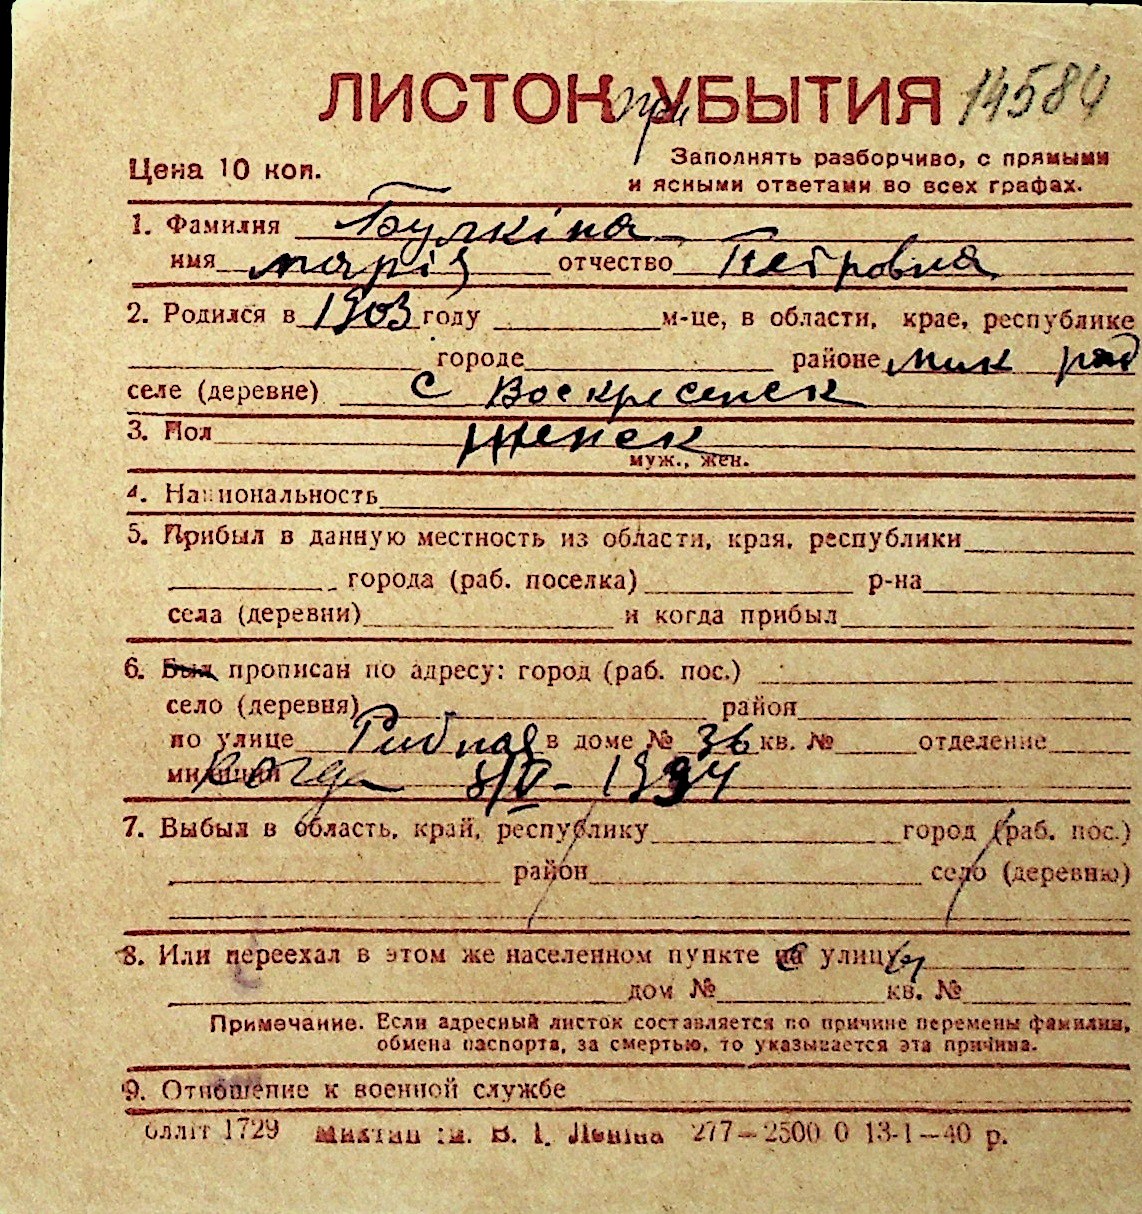 ЛИСТОК при УБЫТИЯ 14584
Цена 10 коп.
Заполнять разборчиво, с прямыми
и ясными ответами во всех графах.
1. Фамилия Булкіна
имя марія отчество Петровна
2. Родился в 1903 году м-це, в области, крае, республике
городе районе мик рад
селе (деревне) с Воскресенск
3. Пол женск
муж., жен.
4. Национальность
5. Прибыл в данную местность из области, края, республики
города (раб. поселка) р-на
села (деревни) и когда прибыл
6. Был прописан по адресу: город (раб. пос.)
село (деревня) район
по улице Рибная в доме № 36 кв. № отделение
милиции когда
7. Выбыл в область, край, республику город (раб. пос.)
район село (деревню)
8. Или переехал в этом же населенном пункте с улицы
дом № кв. №
Примечание. Если адресный листок составляется по причине перемены фамилии,
обмена паспорта, за смертью, то указывается эта причина.
9. Отношение к военной службе
облліт 1729 ім. В. І. Леніна 277—2500 0 13-1—40 р.